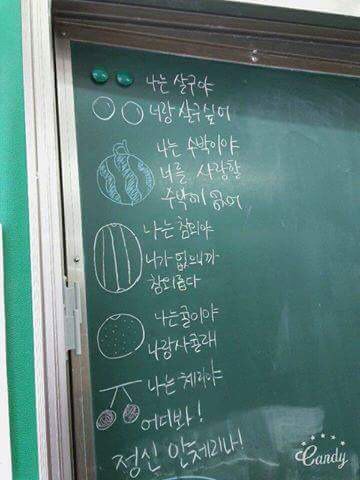 나는 살구야
너랑 살구싶어
나는 수박이야
너를 사랑할
수박께 없어
나는 참외야
니가 없으니까
참외롭다
나는귤이야
나랑사귤래
나는 체리야
어디봐!
정신 안체리나!
Candy